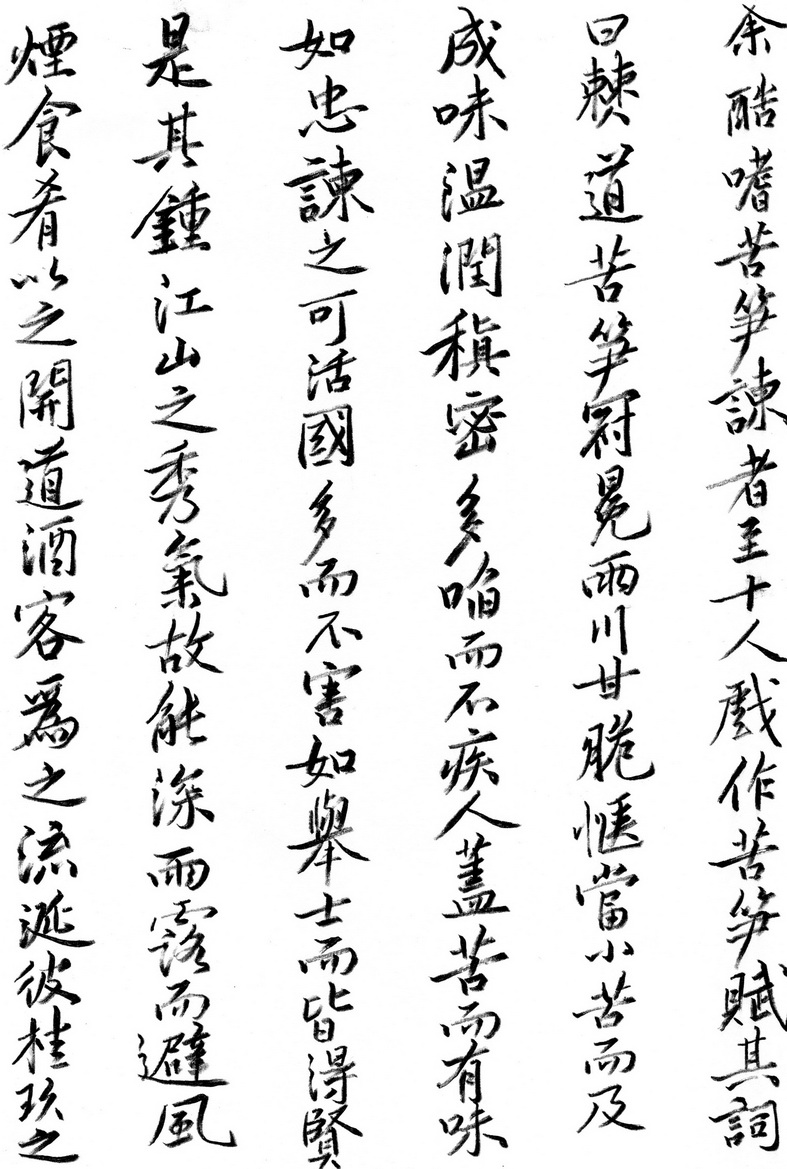 余酷嗜苦笋諫者至十人戲作苦笋賦其詞
曰僰道苦笋冠冕兩川甘脆愜當小苦而及
成味溫潤稹密多啗而不疾人蓋苦而有味
如忠諫之可活國多而不害如舉士而皆得賢
是其鍾江山之秀氣故能深雨露而避風
煙食肴以之開道酒客為之流涎彼桂玖之